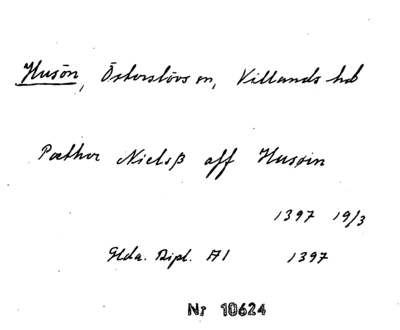 Husön, Österslövs sn, Villands hd
Pæther Nielsß aff Husøin
1397 19/3
Glda. Dipl. A1 1397
Nr 10624